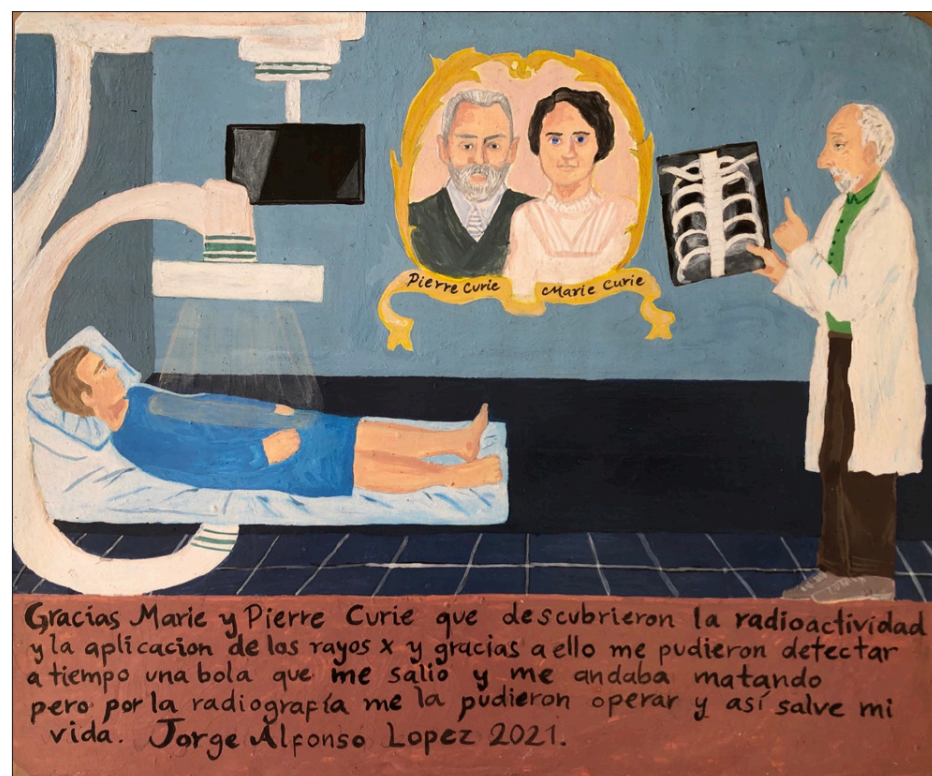 Pierre Curie
Marie Curie
Gracias Marie y Pierre Curie que descubrieron la radioactividad
y la aplicacion de los rayos x y gracias a ello me pudieron detectar
a tiempo una bola que me salio y me andaba matando
pero por la radiografía me la pudieron operar y así salve mi
vida. Jorge Alfonso Lopez 2021.